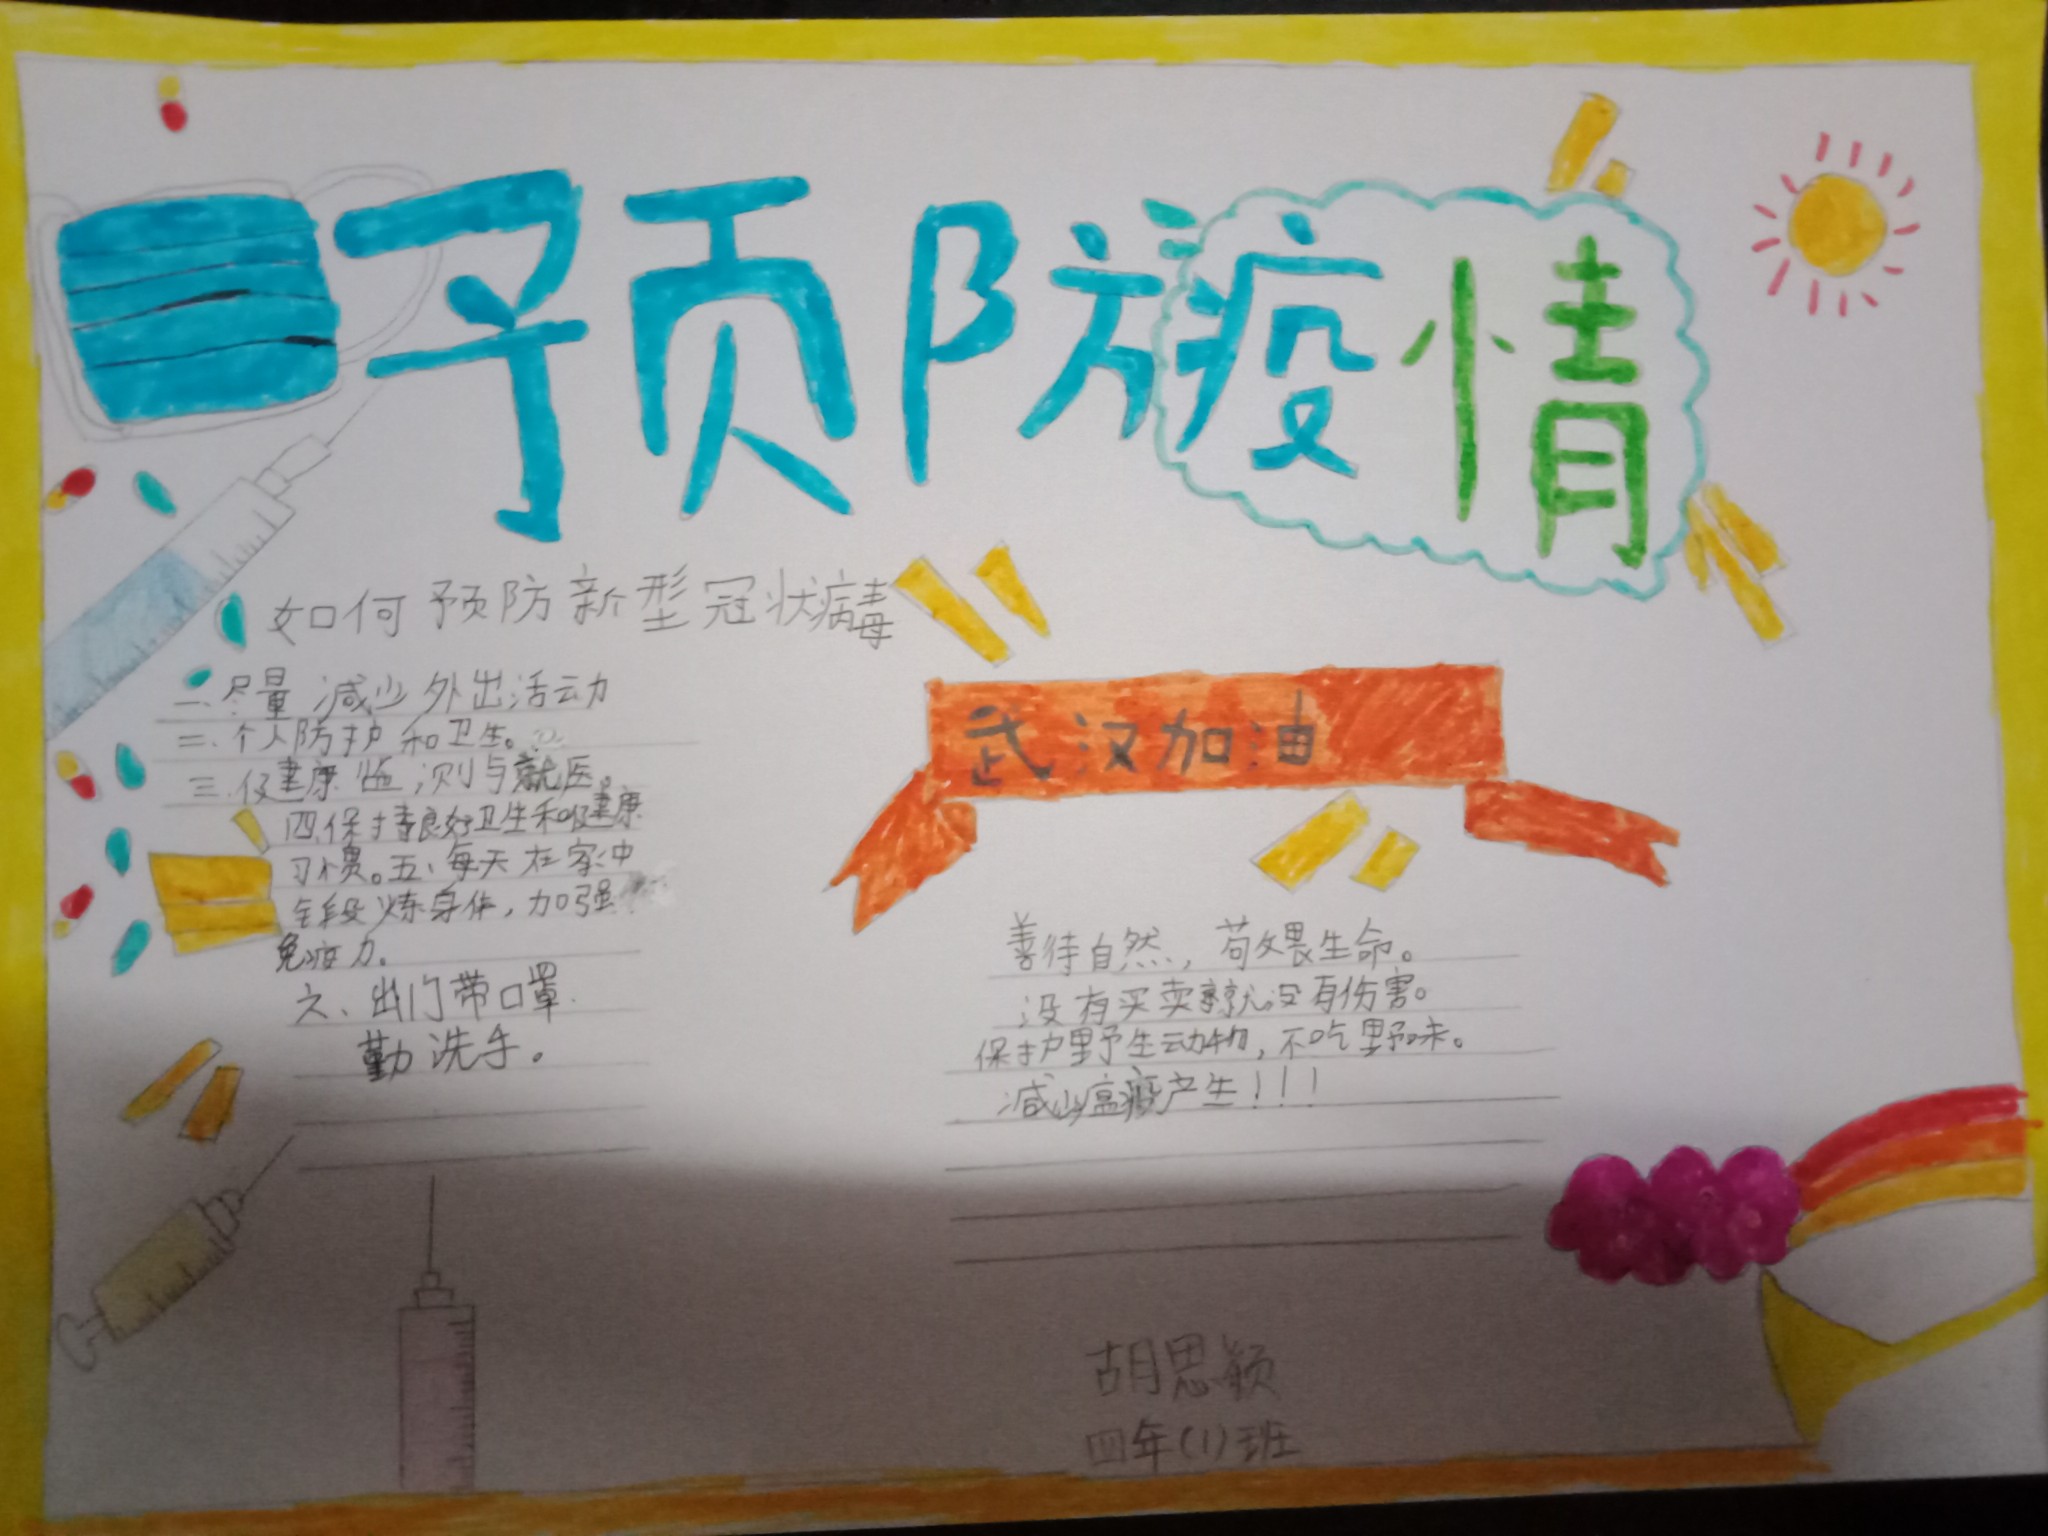 预防疫情
如何预防新型冠状病毒
一、尽量减少外出活动
二、个人防护和卫生。
三、健康 测与就医。
四、保持良好卫生和健康
习惯。五、每天在家中
锻炼身体，加强
免疫力。
六、出门带口罩
勤洗手。
武汉加油
善待自然，苟畏生命。
没有买卖就没有伤害。
保护野生动物，不吃野味。
减少瘟疫产生！！！
胡思颖
四年(1)班